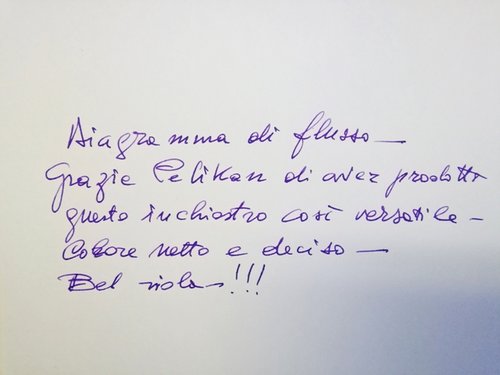 Diagramma di flusso —
Grazie Pelikan di aver prodotto
questo inchiostro così versatile —
Colore netto e deciso —
Bel viola — !!!